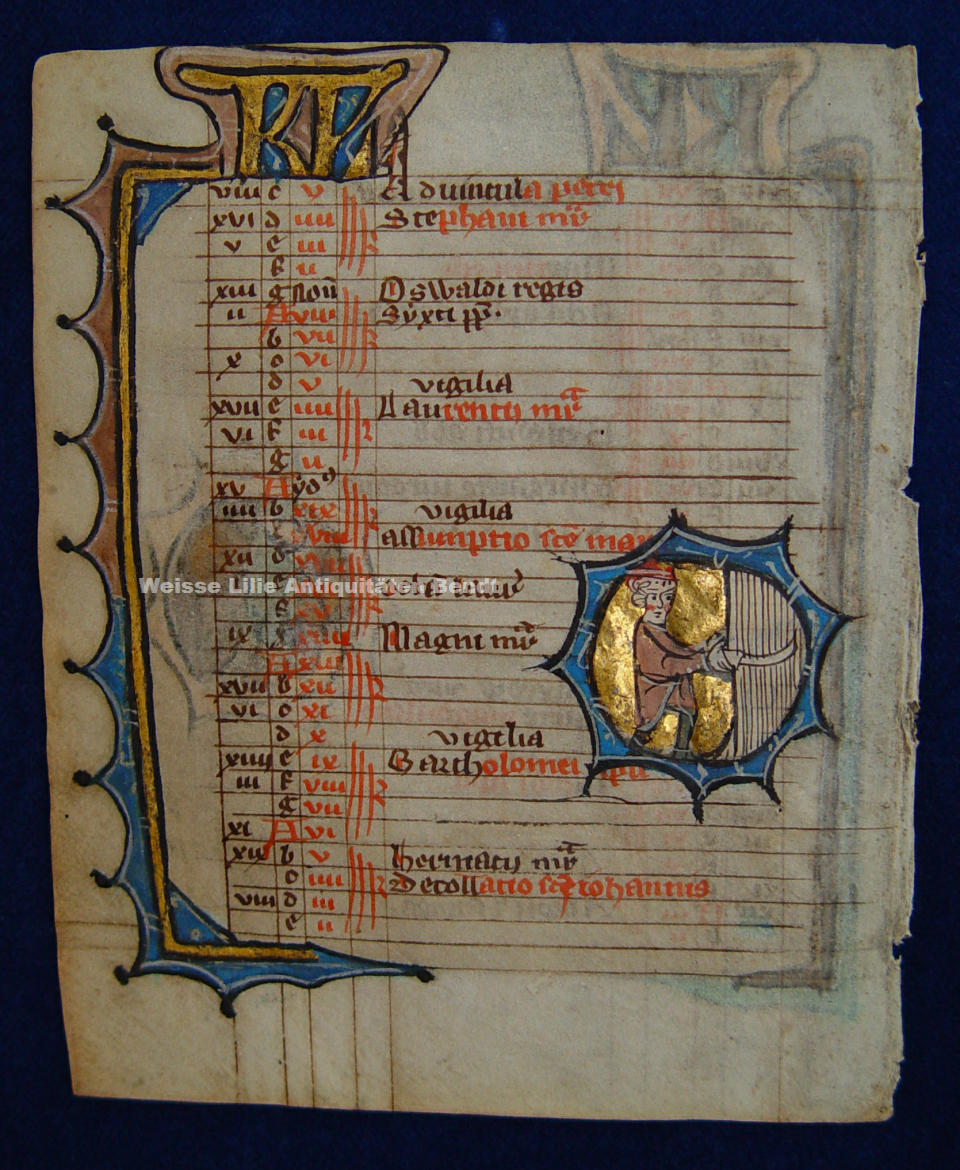 KL
viii c v Ad vincula petri
xvi d iiii Stephani mr̄
v e iii
f ii
xiii g Non̄ Oswaldi regis
ii A viii Syxti pp̄.
b vii
x c vi
d v vigilia
xvii e iiii Laurentij mr̄
vi f iii
g ii
xv A ydꝰ
iiii b xix vigilia
xviii assumptio sc̄e mar
xii d xvii
Weisse Lilie Antiquitäten Bendt
xv
ix g xiiii Magni mr̄
A xiii
xvii b xii
vi c xi
d x vigilia
xiiii e ix Bartholomei
iii f viii
g vii
xi A vi
xix b v hermetis mr̄
c iiii Decollatio sc̄i iohannis
viii d iii
e ii